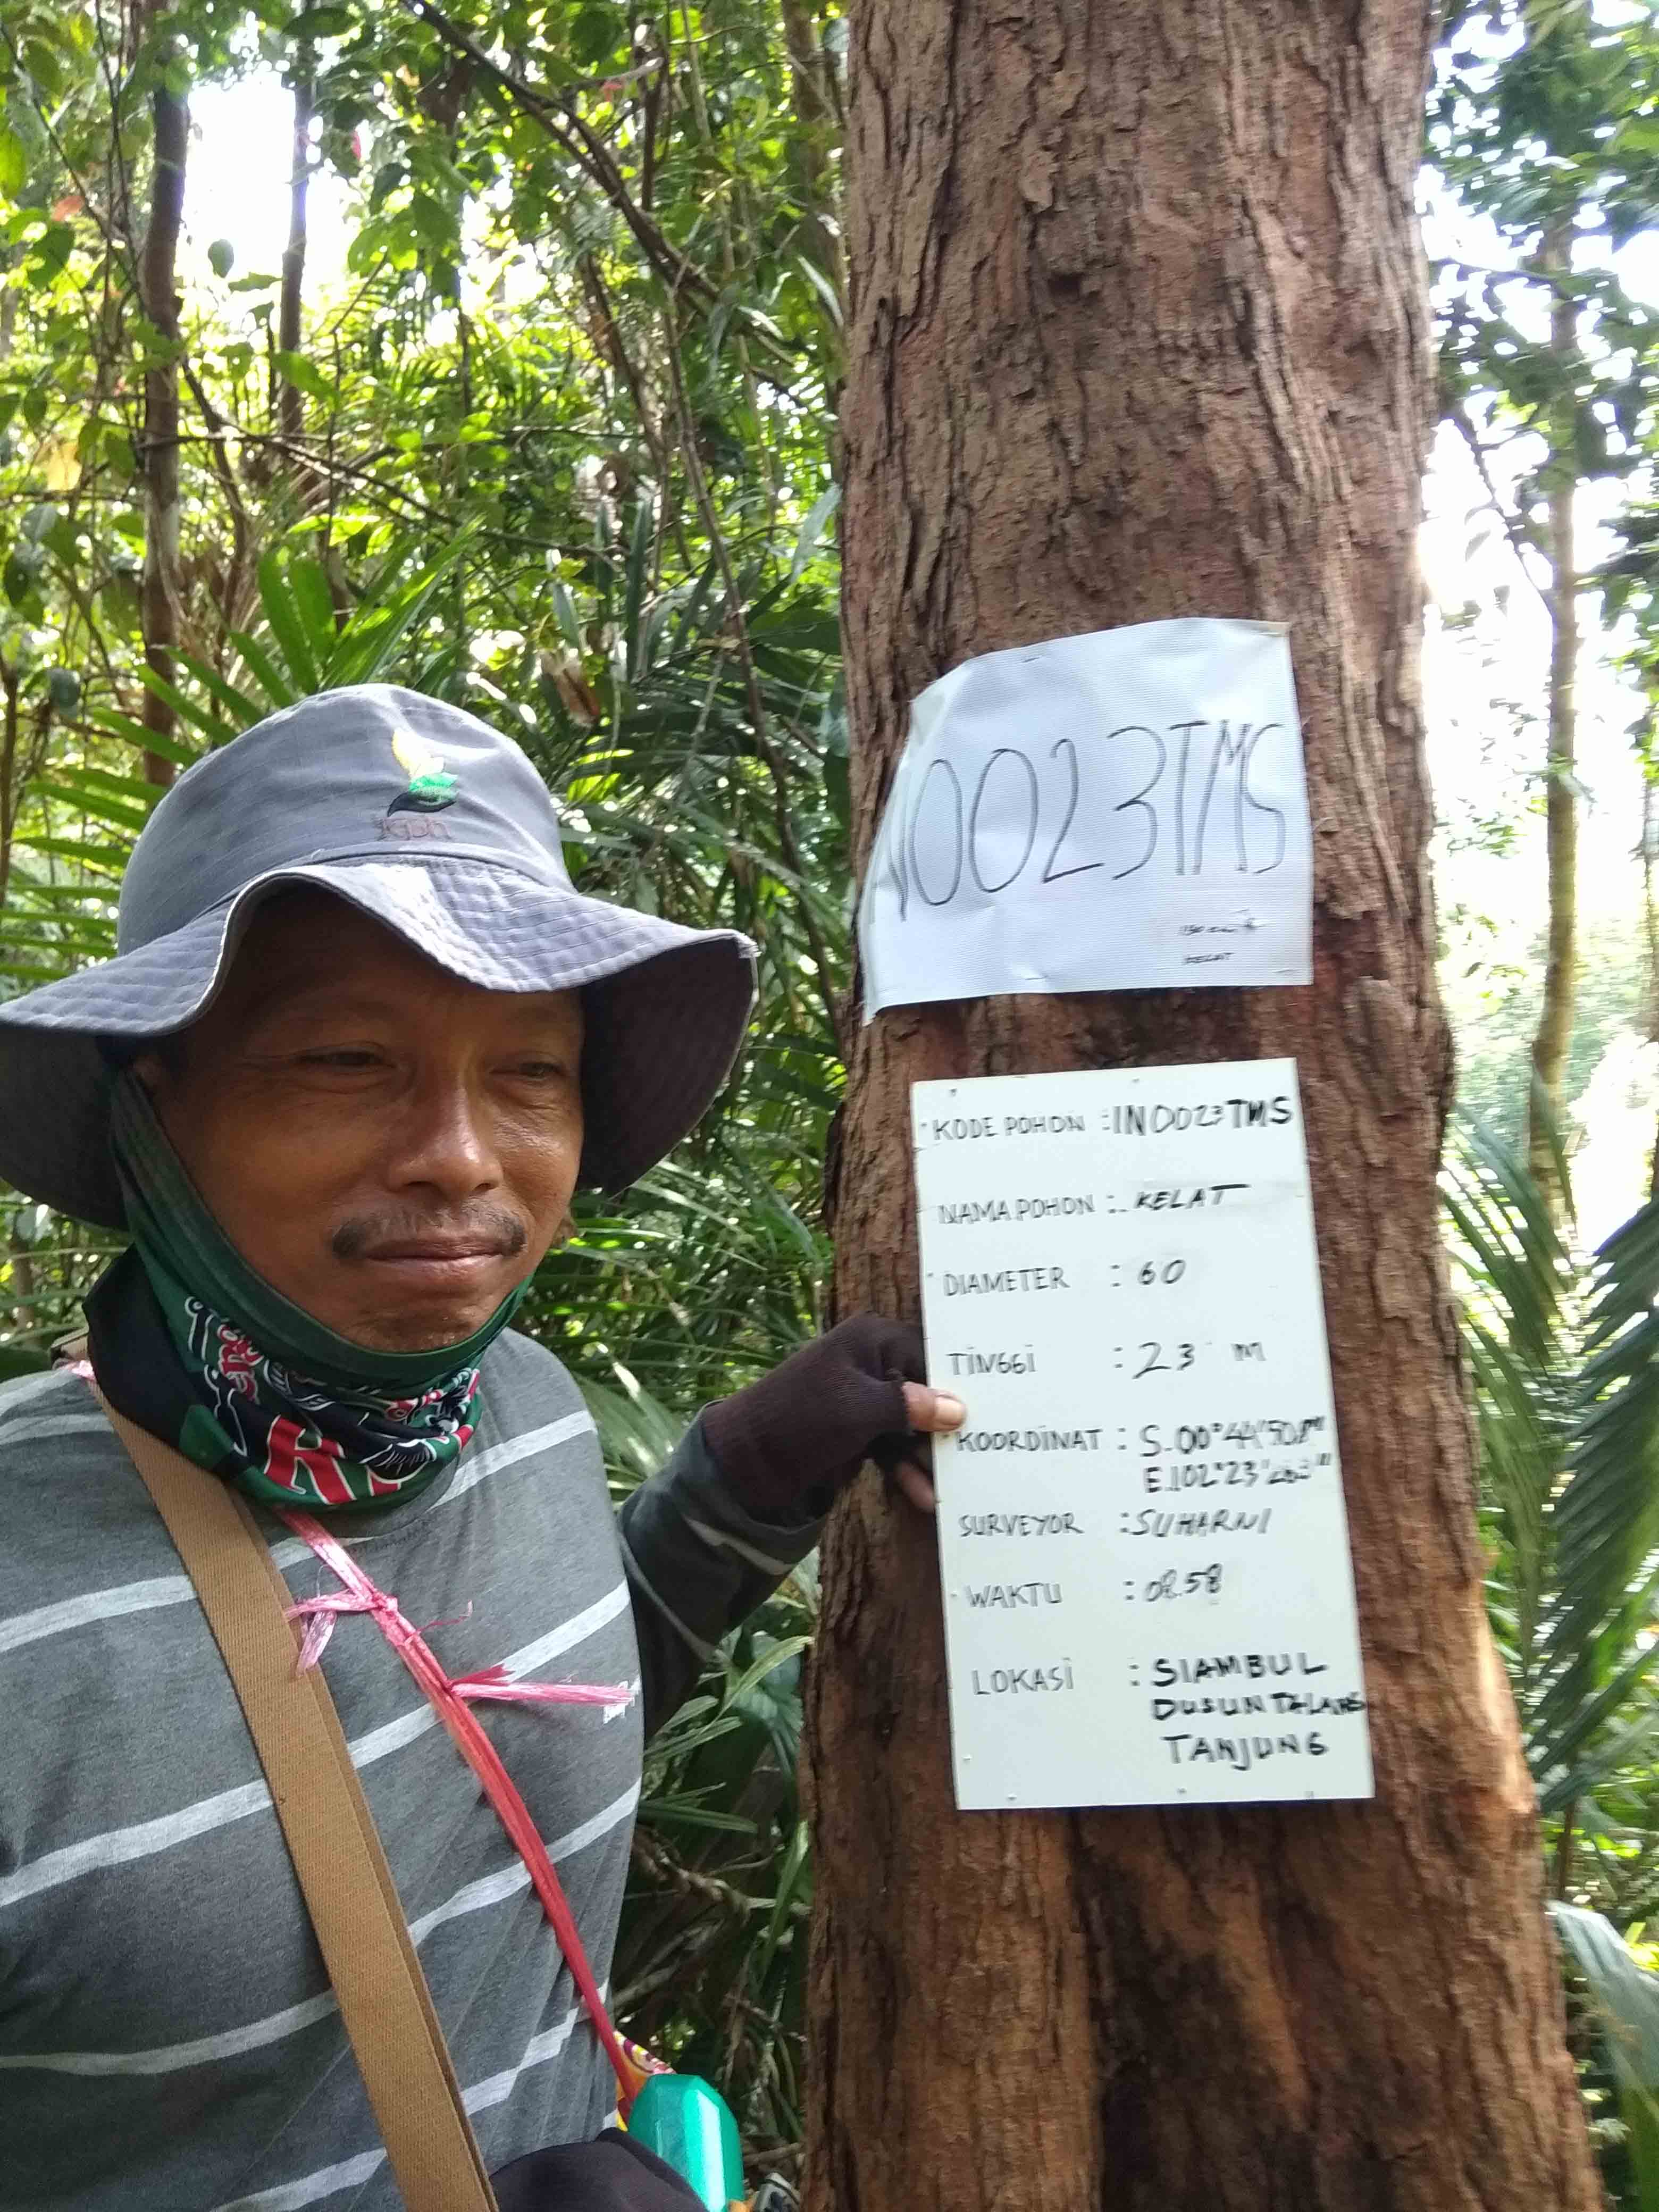 N0023TMS
KELAT
KODE POHON : IN0023TMS
NAMA POHON : KELAT
DIAMETER : 60
TINGGI : 23 M
KOORDINAT : S.00°44'50.8"
E.102°23'
SURVEYOR : SUHARNI
WAKTU : 08.58
LOKASI : SIAMBUL
DUSUN TALANG
TANJUNG